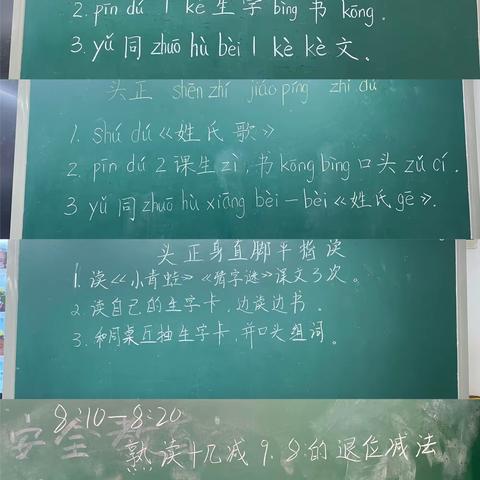 2. pīn dú 1 kè 生字 bìng 书 kōng.
3. yǔ 同 zhuō hù bèi 1 kè kè 文.
头正 shēn zhí jiǎo píng zhǐ dú
1. shú dú《姓氏歌》
2. pīn dú 2 课生 zì, 书 kōng bìng 口头 zǔ cí.
3 yǔ 同 zhuō hù xiāng bèi 一 bèi《姓氏 gē》.
头正身直脚平指读
1. 读《小青蛙》《猜字谜》课文3次。
2. 读自己的生字卡,边读边书.
3. 和同桌互抽生字卡,并口头组词。
8:10—8:20
安全
熟读十几减9.8的退位减法